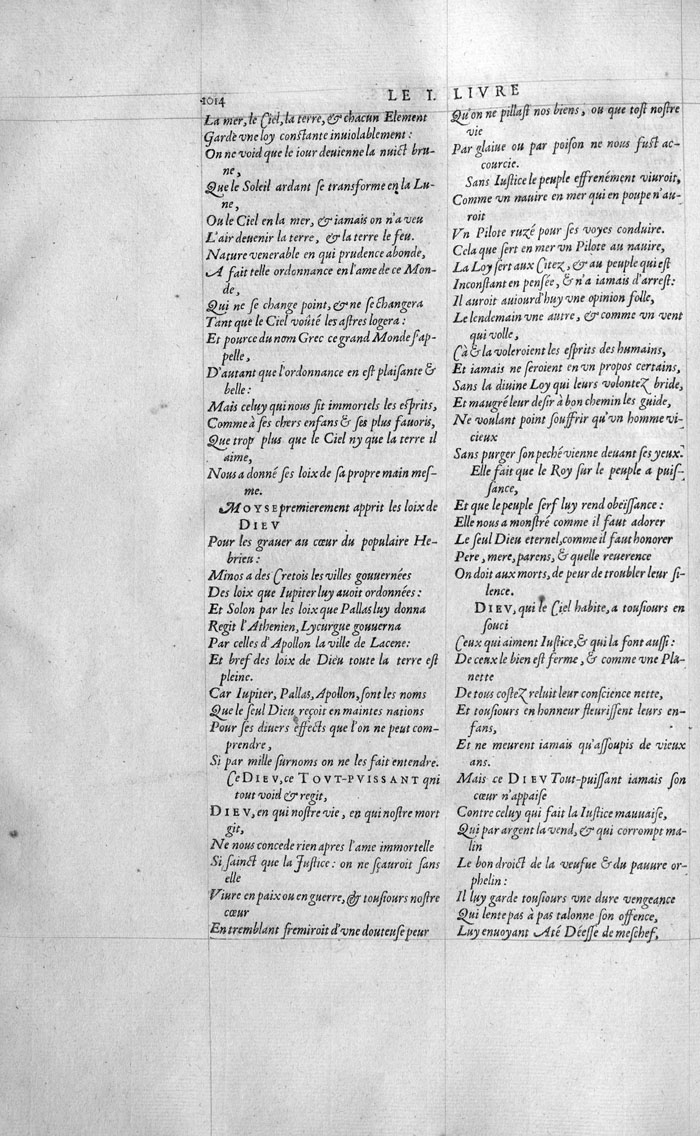 1014
LE I. LIVRE
La mer, le Ciel, la terre, & chacun Element
Garde vne loy constante inuiolablement :
On ne void que le iour deuienne la nuict bru-
ne,
Que le Soleil ardant se transforme en la Lu-
ne,
Ou le Ciel en la mer, & iamais on n'a veu
L'air deuenir la terre, & la terre le feu.
Nature venerable en qui prudence abonde,
A fait telle ordonnance en l'ame de ce Mon-
de,
Qui ne se change point, & ne se changera
Tant que le Ciel voûté les astres logera :
Et pource du nom Grec ce grand Monde s'ap-
pelle,
D'autant que l'ordonnance en est plaisante &
belle :
Mais celuy qui nous fit immortels les esprits,
Comme à ses chers enfans & ses plus fauoris,
Que trop plus que le Ciel ny que la terre il
aime,
Nous a donné ses loix de sa propre main mes-
me.
MOYSE premierement apprit les loix de
DIEV
Pour les grauer au cœur du populaire He-
brieu :
Minos a des Cretois les villes gouuernées
Des loix que Iupiter luy auoit ordonnées :
Et Solon par les loix que Pallas luy donna
Regit l'Athenien, Lycurgue gouuerna
Par celles d'Apollon la ville de Lacene:
Et bref des loix de Dieu toute la terre est
pleine.
Car Iupiter, Pallas, Apollon, sont les noms
Que le seul Dieu reçoit en maintes nations
Pour ses diuers effects que l'on ne peut com-
prendre,
Si par mille surnoms on ne les fait entendre.
Ce DIEV, ce TOVT-PVISSANT qui
tout void & regit,
DIEV, en qui nostre vie, en qui nostre mort
git,
Ne nous concede rien apres l'ame immortelle
Si sainct que la Justice : on ne sçauroit sans
elle
Viure en paix ou en guerre, & tousiours nostre
cœur
En tremblant fremiroit d'vne douteuse peur
Qu'on ne pillast nos biens, ou que tost nostre
vie
Par glaiue ou par poison ne nous fust ac-
courcie.
Sans Iustice le peuple effrenément viuroit,
Comme vn nauire en mer qui en poupe n'au-
roit
Vn Pilote ruzé pour ses voyes conduire.
Cela que sert en mer vn Pilote au nauire,
La Loy sert aux Citez, & au peuple qui est
Inconstant en pensée, & n'a iamais d'arrest:
Il auroit auiourd'huy vne opinion folle,
Le lendemain vne autre, & comme vn vent
qui volle,
Çà & la voleroient les esprits des humains,
Et iamais ne seroient en vn propos certains,
Sans la diuine Loy qui leurs volontez bride,
Et maugré leur desir à bon chemin les guide,
Ne voulant point souffrir qu'vn homme vi-
cieux
Sans purger son peché vienne deuant ses yeux.
Elle fait que le Roy sur le peuple a puis-
sance,
Et que le peuple serf luy rend obeïssance :
Elle nous a monstré comme il faut adorer
Le seul Dieu eternel, comme il faut honorer
Pere, mere, parens, & quelle reuerence
On doit aux morts, de peur de troubler leur si-
lence.
DIEV, qui le Ciel habite, a tousiours en
souci
Ceux qui aiment Iustice, & qui la font aussi :
De ceux le bien est ferme, & comme vne Pla-
nette
De tous costez reluit leur conscience nette,
Et tousiours en honneur fleurissent leurs en-
fans,
Et ne meurent iamais qu'assoupis de vieux
ans.
Mais ce DIEV Tout-puissant iamais son
cœur n'appaise
Contre celuy qui fait la Iustice mauuaise,
Qui par argent la vend, & qui corrompt ma-
lin
Le bon droict de la veufue & du pauure or-
phelin :
Il luy garde tousiours vne dure vengeance
Qui lente pas à pas talonne son offence,
Luy enuoyant Até Déesse de meschef,